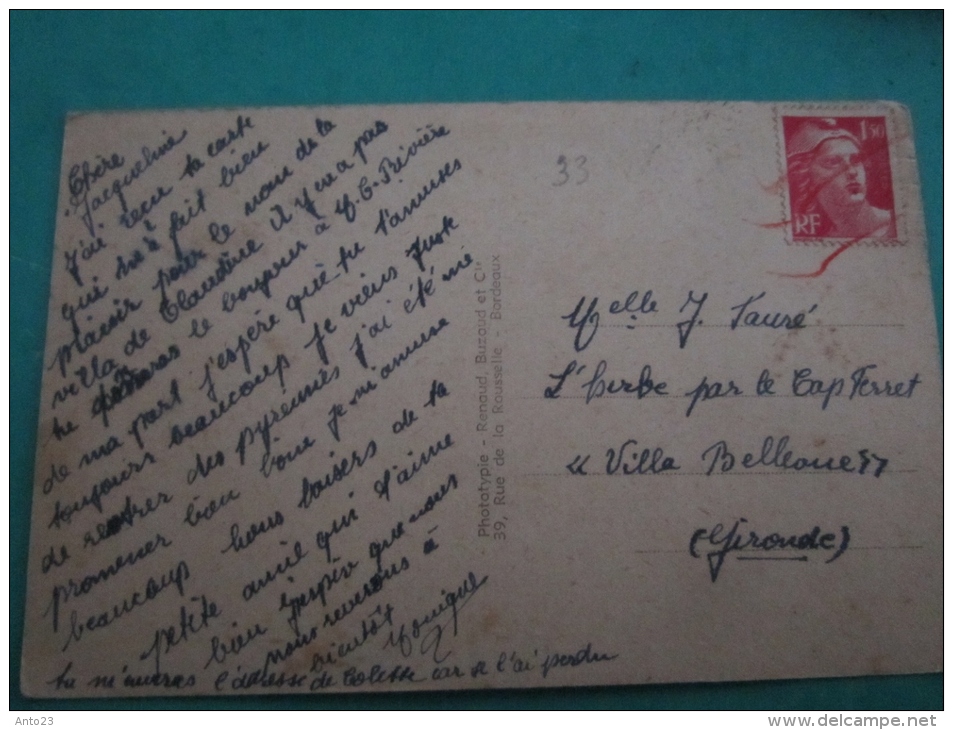 Chère
Jacqueline
J'ai reçu ta carte
qui m'a fait bien
plaisir pour le nom de la
villa de Claudine il y en a pas
tu donneras le bonjour à
de ma part j'espère que tu t'amuses
toujours beaucoup je viens juste
de rentrer des Pyrennées j'ai été me
promener bien loin je m'amuse
beaucoup bons baisers de ta
petite amie qui t'aime
bien j'espère que nous
nous reverons à
bientôt
Monique
tu m'enveras l'adresse de Colette car je l'ai perdu
Phototypie - Renaud, Buzaud et Cie
39, Rue de la Rousselle - Bordeaux
33
1F50
RF
Melle J. Fauré
L'herbe par le Cap Ferret
"Villa Belleone"
(Gironde)
Anto23
www.delcampe.net